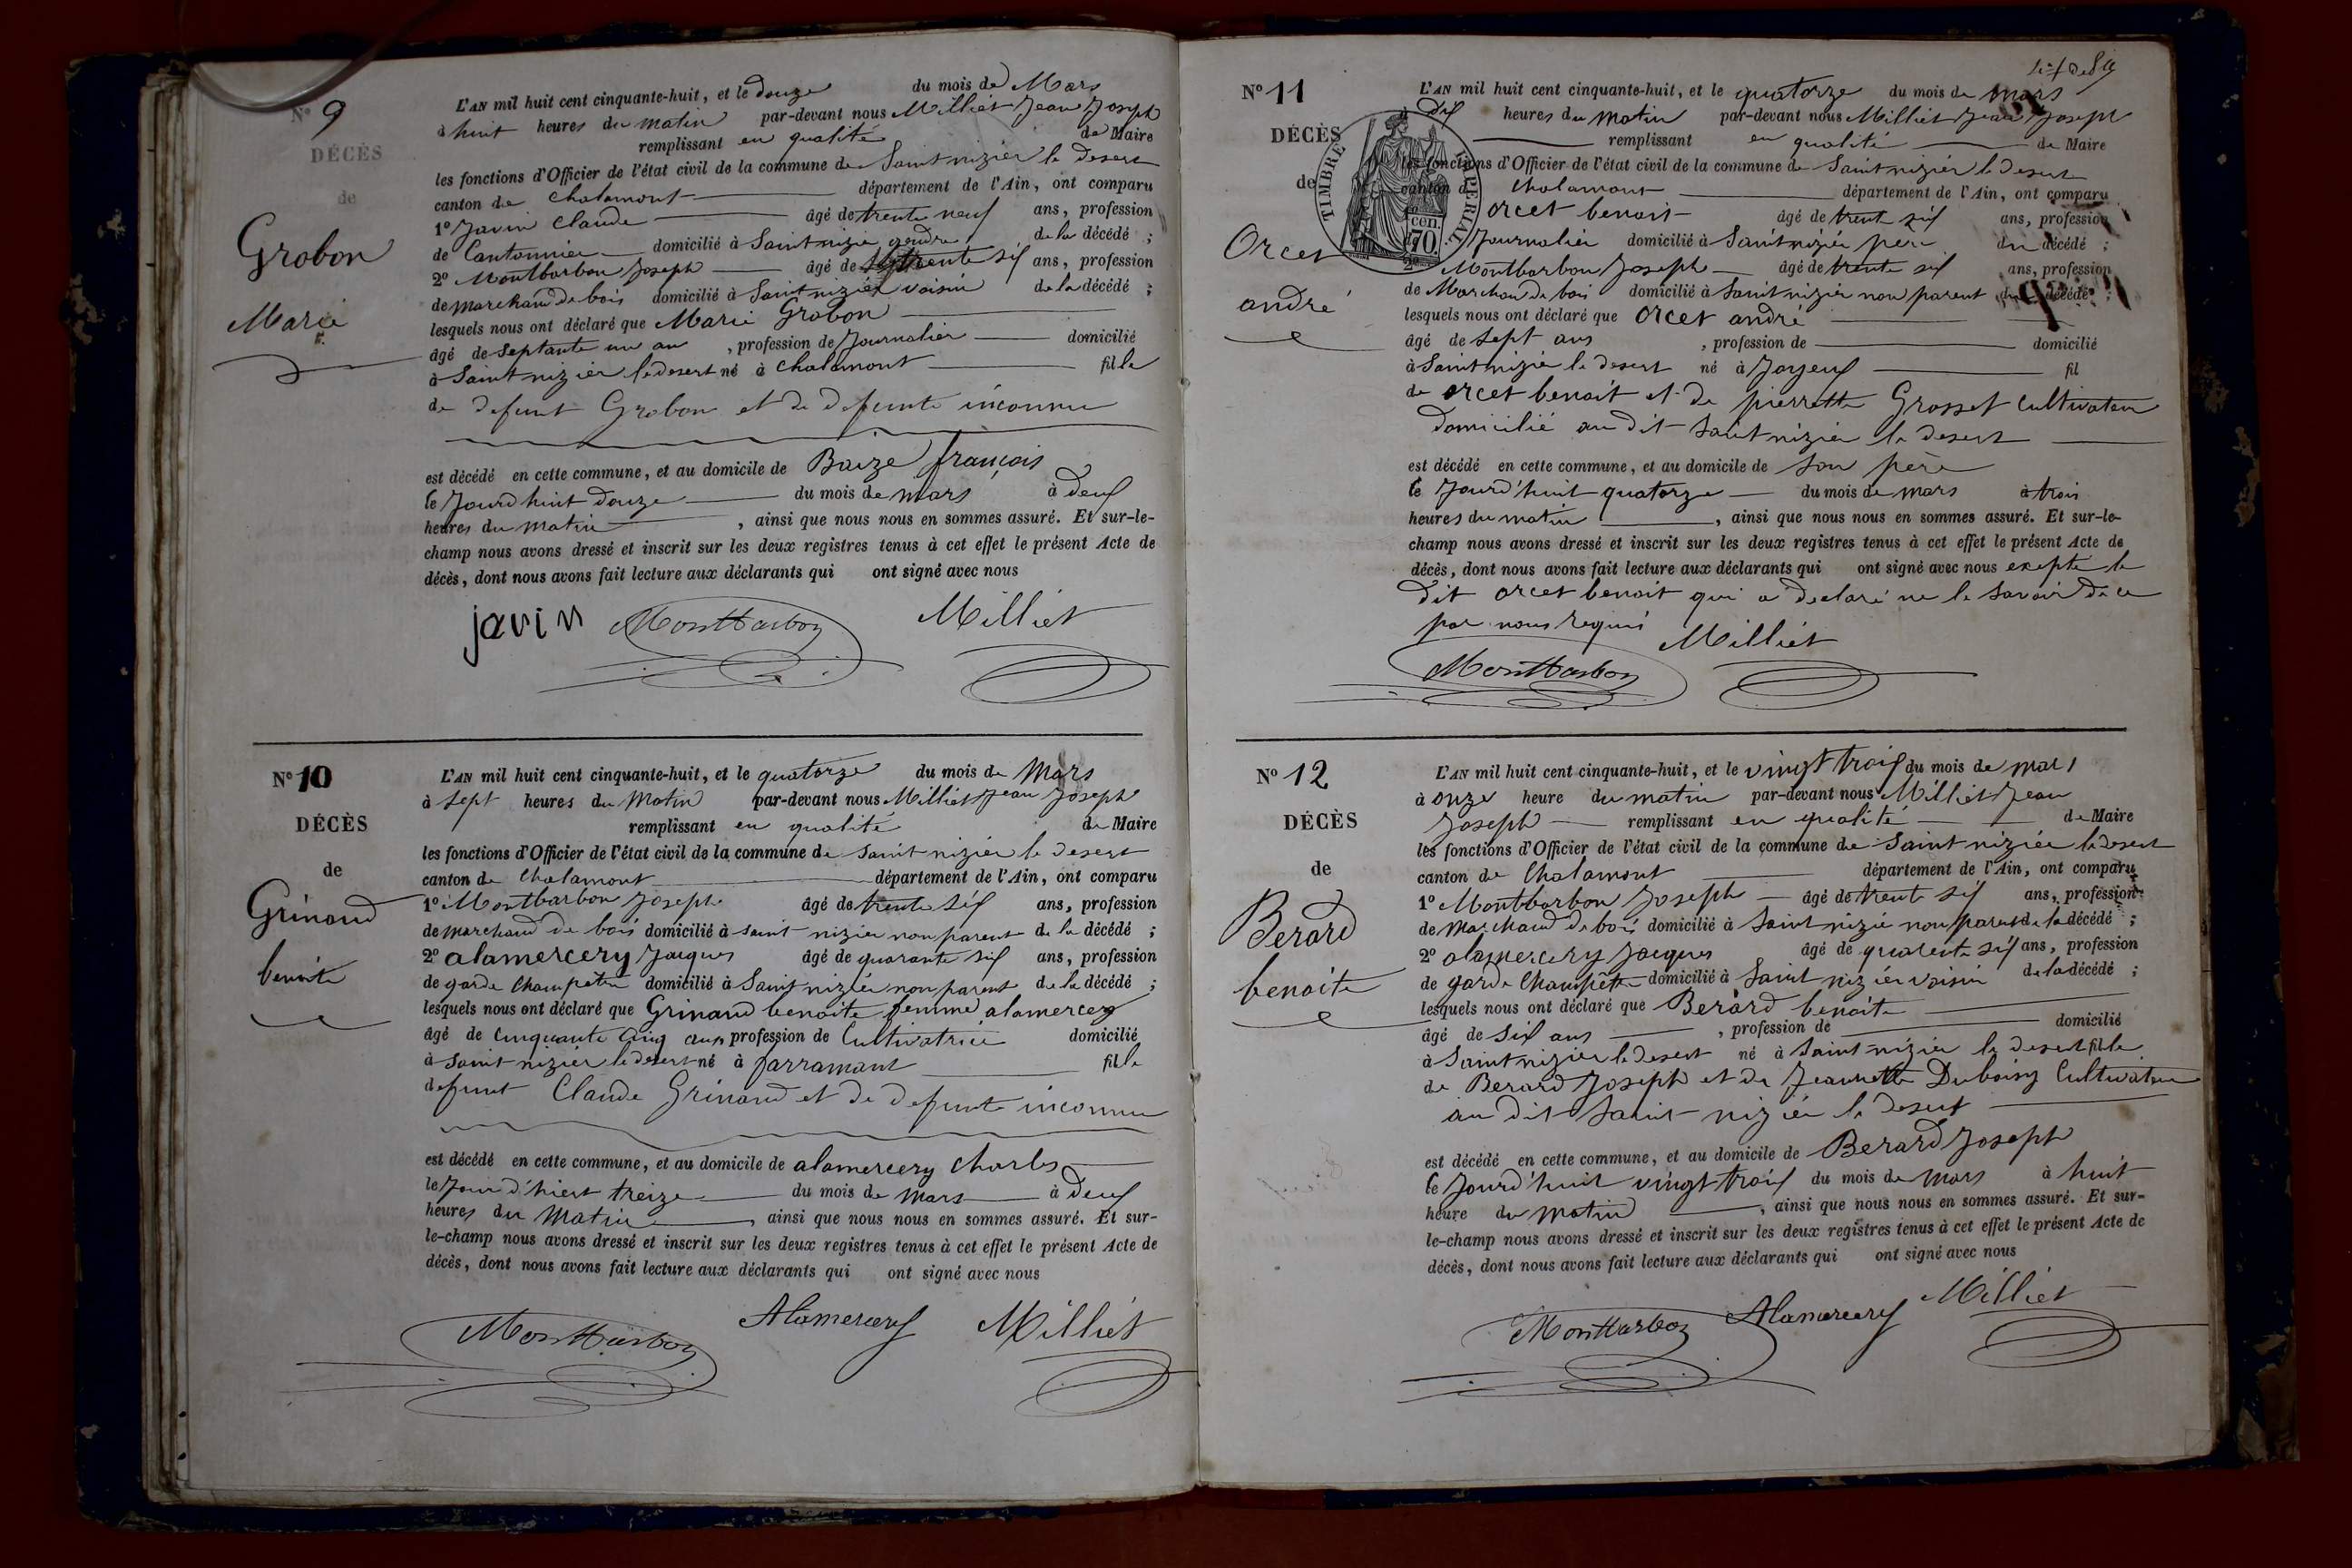 N° 9
DÉCÈS
de
Grobon
Marie
L'AN mil huit cent cinquante-huit, et le douze du mois de Mars
à huit heures du matin par-devant nous Milliet Jean Joseph
remplissant en qualité de Maire
les fonctions d'Officier de l'état civil de la commune de Saint nizier le desert
canton de Chalamont département de l'Ain, ont comparu
1° Javin Claude âgé de trente neuf ans, profession
de Cantonnier domicilié à Saint nizier gendre de la décédé ;
2° Montbarbon Joseph âgé de trente six ans, profession
de marchand de bois domicilié à Saint nizier voisin de la décédé ;
lesquels nous ont déclaré que Marie Grobon
âgé de septante un an , profession de Journalier domicilié
à Saint nizier le desert né à Chalamont fille
de defunt Grobon et de defunte inconnue
est décédé en cette commune, et au domicile de Baize françois
le Jourd'huit douze du mois de mars à deux
heures du matin , ainsi que nous nous en sommes assuré. Et sur-le-
champ nous avons dressé et inscrit sur les deux registres tenus à cet effet le présent Acte de
décès, dont nous avons fait lecture aux déclarants qui ont signé avec nous
javin Montbarbon Milliet
N° 10
DÉCÈS
de
Grinand
benoite
L'AN mil huit cent cinquante-huit, et le quatorze du mois de Mars
à sept heures du Matin par-devant nous Milliet Jean Joseph
remplissant en qualité de Maire
les fonctions d'Officier de l'état civil de la commune de Saint nizier le desert
canton de Chalamont département de l'Ain, ont comparu
1° Montbarbon Joseph âgé de trente six ans, profession
de marchand de bois domicilié à saint nizier non parent de la décédé ;
2° alamercery Jacques âgé de quarante six ans, profession
de garde Champetre domicilié à Saint nizier non parent de la décédé ;
lesquels nous ont déclaré que Grinand benoite femme alamercery
âgé de Cinquante Cinq ans profession de Cultivatrice domicilié
à saint nizier le desert né à farramant fille
defunt Claude Grinand et de defunte inconnue
est décédé en cette commune, et au domicile de alamercery Charles
le Jour d'hiert treize du mois de mars à deux
heures du Matin , ainsi que nous nous en sommes assuré. Et sur-
le-champ nous avons dressé et inscrit sur les deux registres tenus à cet effet le présent Acte de
décès, dont nous avons fait lecture aux déclarants qui ont signé avec nous
Montbarbon Alamercery Milliet
N° 11
DÉCÈS
de
Orcet
andré
TIMBRE IMPERIAL
cen.
70
L'AN mil huit cent cinquante-huit, et le quatorze du mois de mars
à dix heures du Matin par-devant nous Milliet Jean Joseph
remplissant en qualité de Maire
les fonctions d'Officier de l'état civil de la commune de Saint nizier le desert
canton de Chalamont département de l'Ain, ont comparu
Orcet benoit âgé de trente six ans, profession
Journalier domicilié à Saint nizier père du décédé ;
2° Montbarbon Joseph âgé de trente six ans, profession
de Marchand de bois domicilié à Saint nizier non parent du décédé ;
lesquels nous ont déclaré que Orcet andré
âgé de sept ans , profession de domicilié
à Saint nizier le desert né à Joyeux fil
de orcet benoit et de pierrette Grosset Cultivateur
Domicilié au dit saint nizier le desert
est décédé en cette commune, et au domicile de son père
le Jourd'huit quatorze du mois de mars à trois
heures du matin , ainsi que nous nous en sommes assuré. Et sur-le-
champ nous avons dressé et inscrit sur les deux registres tenus à cet effet le présent Acte de
décès, dont nous avons fait lecture aux déclarants qui ont signé avec nous exepte le
dit orcet benoit qui a declaré ne le savoir de ce
par nous requis Milliet
Montbarbon
N° 12
DÉCÈS
de
Berard
benoite
L'AN mil huit cent cinquante-huit, et le vingt trois du mois de mars
à onze heure du matin par-devant nous Milliet Jean
Joseph remplissant en qualite de Maire
les fonctions d'Officier de l'état civil de la commune de Saint nizier le desert
canton de Chalamont département de l'Ain, ont comparu
1° Montbarbon Joseph âgé de trent six ans, profession
de Marchand de bois domicilié à Saint nizié non parent de la décédé ;
2° alamercery Jacques âgé de quarente six ans, profession
de garde Champêtre domicilié à Saint nizier voisin de la décédé ;
lesquels nous ont déclaré que Berard benoite
âgé de Six ans , profession de domicilié
à Saint nizier le desert né à Saint nizier le desert fille
de Berard Joseph et de Jeannette Duboisy Cultivateur
au dit Saint nizier le desert
est décédé en cette commune, et au domicile de Berard Joseph
le Jourd'huit vingt trois du mois de mars à huit
heure du matin , ainsi que nous nous en sommes assuré. Et sur-
le-champ nous avons dressé et inscrit sur les deux registres tenus à cet effet le présent Acte de
décès, dont nous avons fait lecture aux déclarants qui ont signé avec nous
Montbarbon Alamercery Milliet